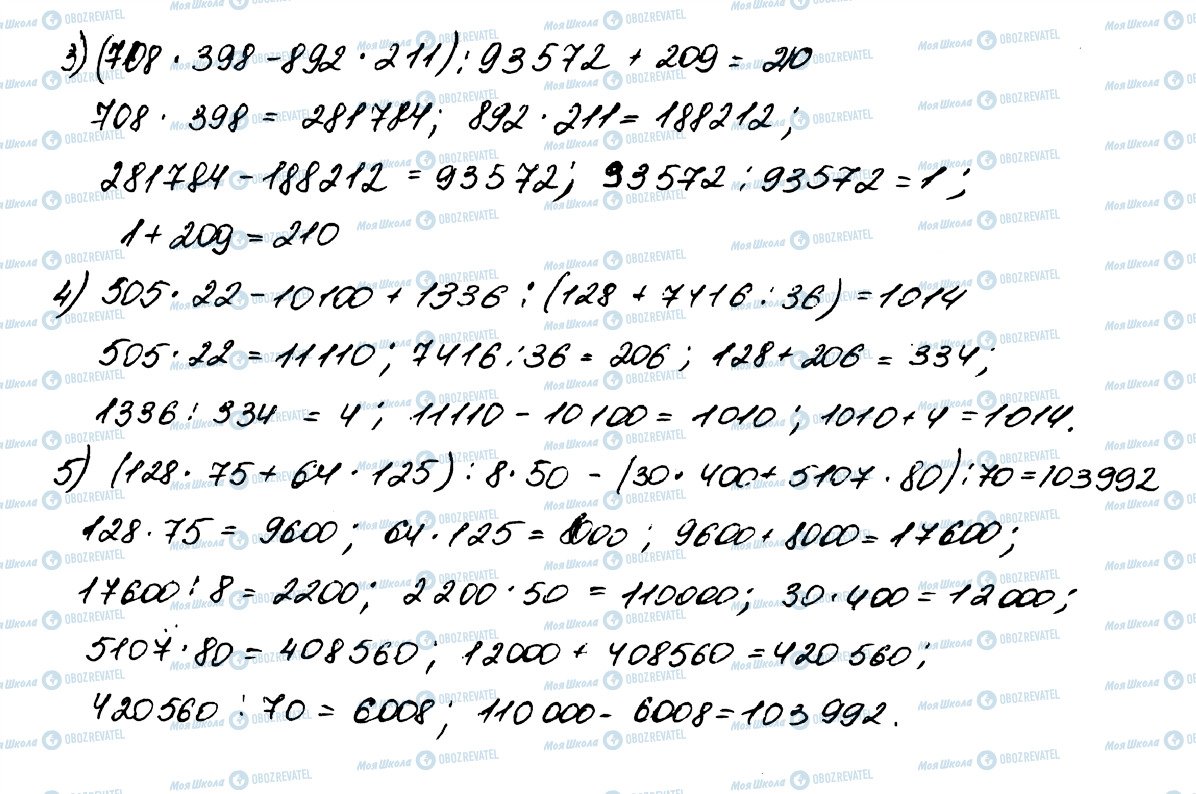 3) (708 · 398 - 892 · 211) : 93572 + 209 = 210
708 · 398 = 281784; 892 · 211 = 188212;
281784 - 188212 = 93572; 93572 : 93572 = 1;
1 + 209 = 210
4) 505 · 22 - 10100 + 1336 : (128 + 7416 : 36) = 1014
505 · 22 = 11110; 7416 : 36 = 206; 128 + 206 = 334;
1336 : 334 = 4; 11110 - 10100 = 1010; 1010 + 4 = 1014.
5) (128 · 75 + 64 · 125) : 8 · 50 - (30 · 400 + 5107 · 80) : 70 = 103992
128 · 75 = 9600; 64 · 125 = 8000; 9600 + 8000 = 17600;
17600 : 8 = 2200; 2200 · 50 = 110000; 30 · 400 = 12000;
5107 · 80 = 408560; 12000 + 408560 = 420560;
420560 : 70 = 6008; 110000 - 6008 = 103992.
МояШкола OBOZREVATEL